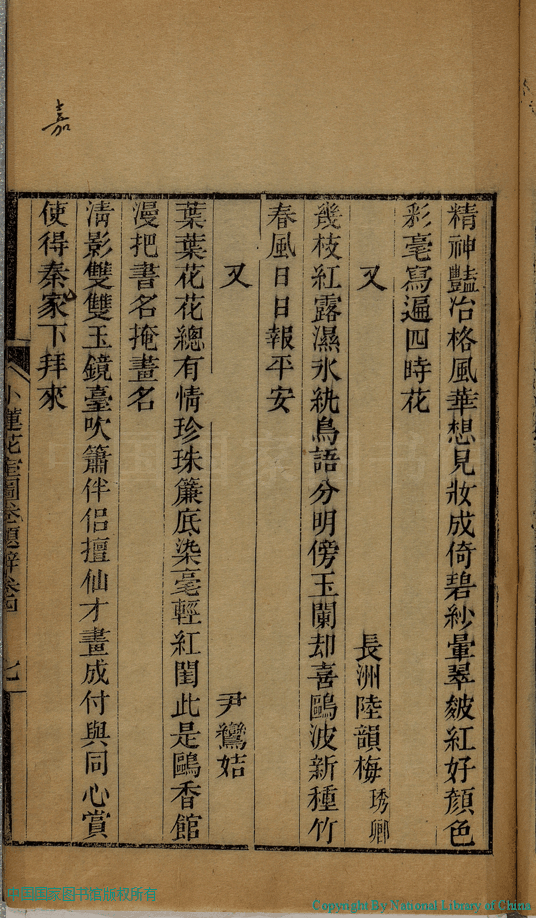 嘉
精神豔冶格風華想見妝成倚碧紗暈翠皴紅好顏色
彩毫寫遍四時花
又 長洲陸韻梅琇卿
幾枝紅露濕氷紈鳥語分明傍玉闌却喜鷗波新種竹
春風日日報平安
又 尹鸞姞
葉葉花花總有情珍珠簾底染毫輕紅閨此是鷗香館
漫把書名掩畫名
淸影雙雙玉鏡臺吹簫伴侶擅仙才畫成付與同心賞
使得秦家下拜來
小蓮花室圖卷題辭卷四 七
中国国家图书馆
中国国家图书馆版权所有
Copyright By National Library of China